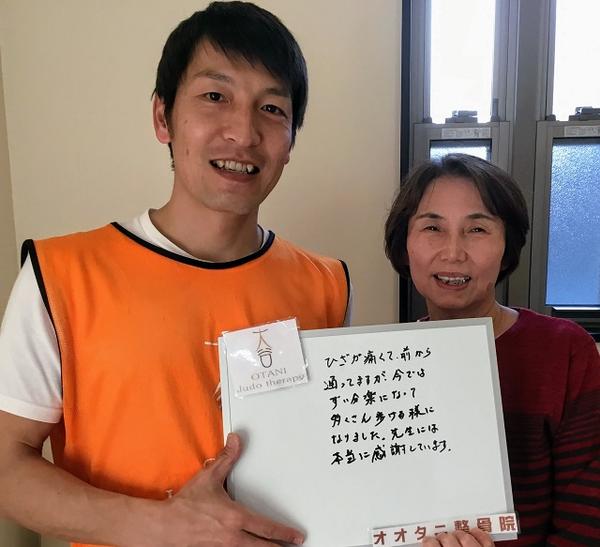 大谷
OTANI
Judo therapy
ひざが痛くて、前から
通ってますが、今では
ずい分楽になって
多くさん歩ける様に
なりました。先生には
本当に感謝しています。
オオタニ整骨院